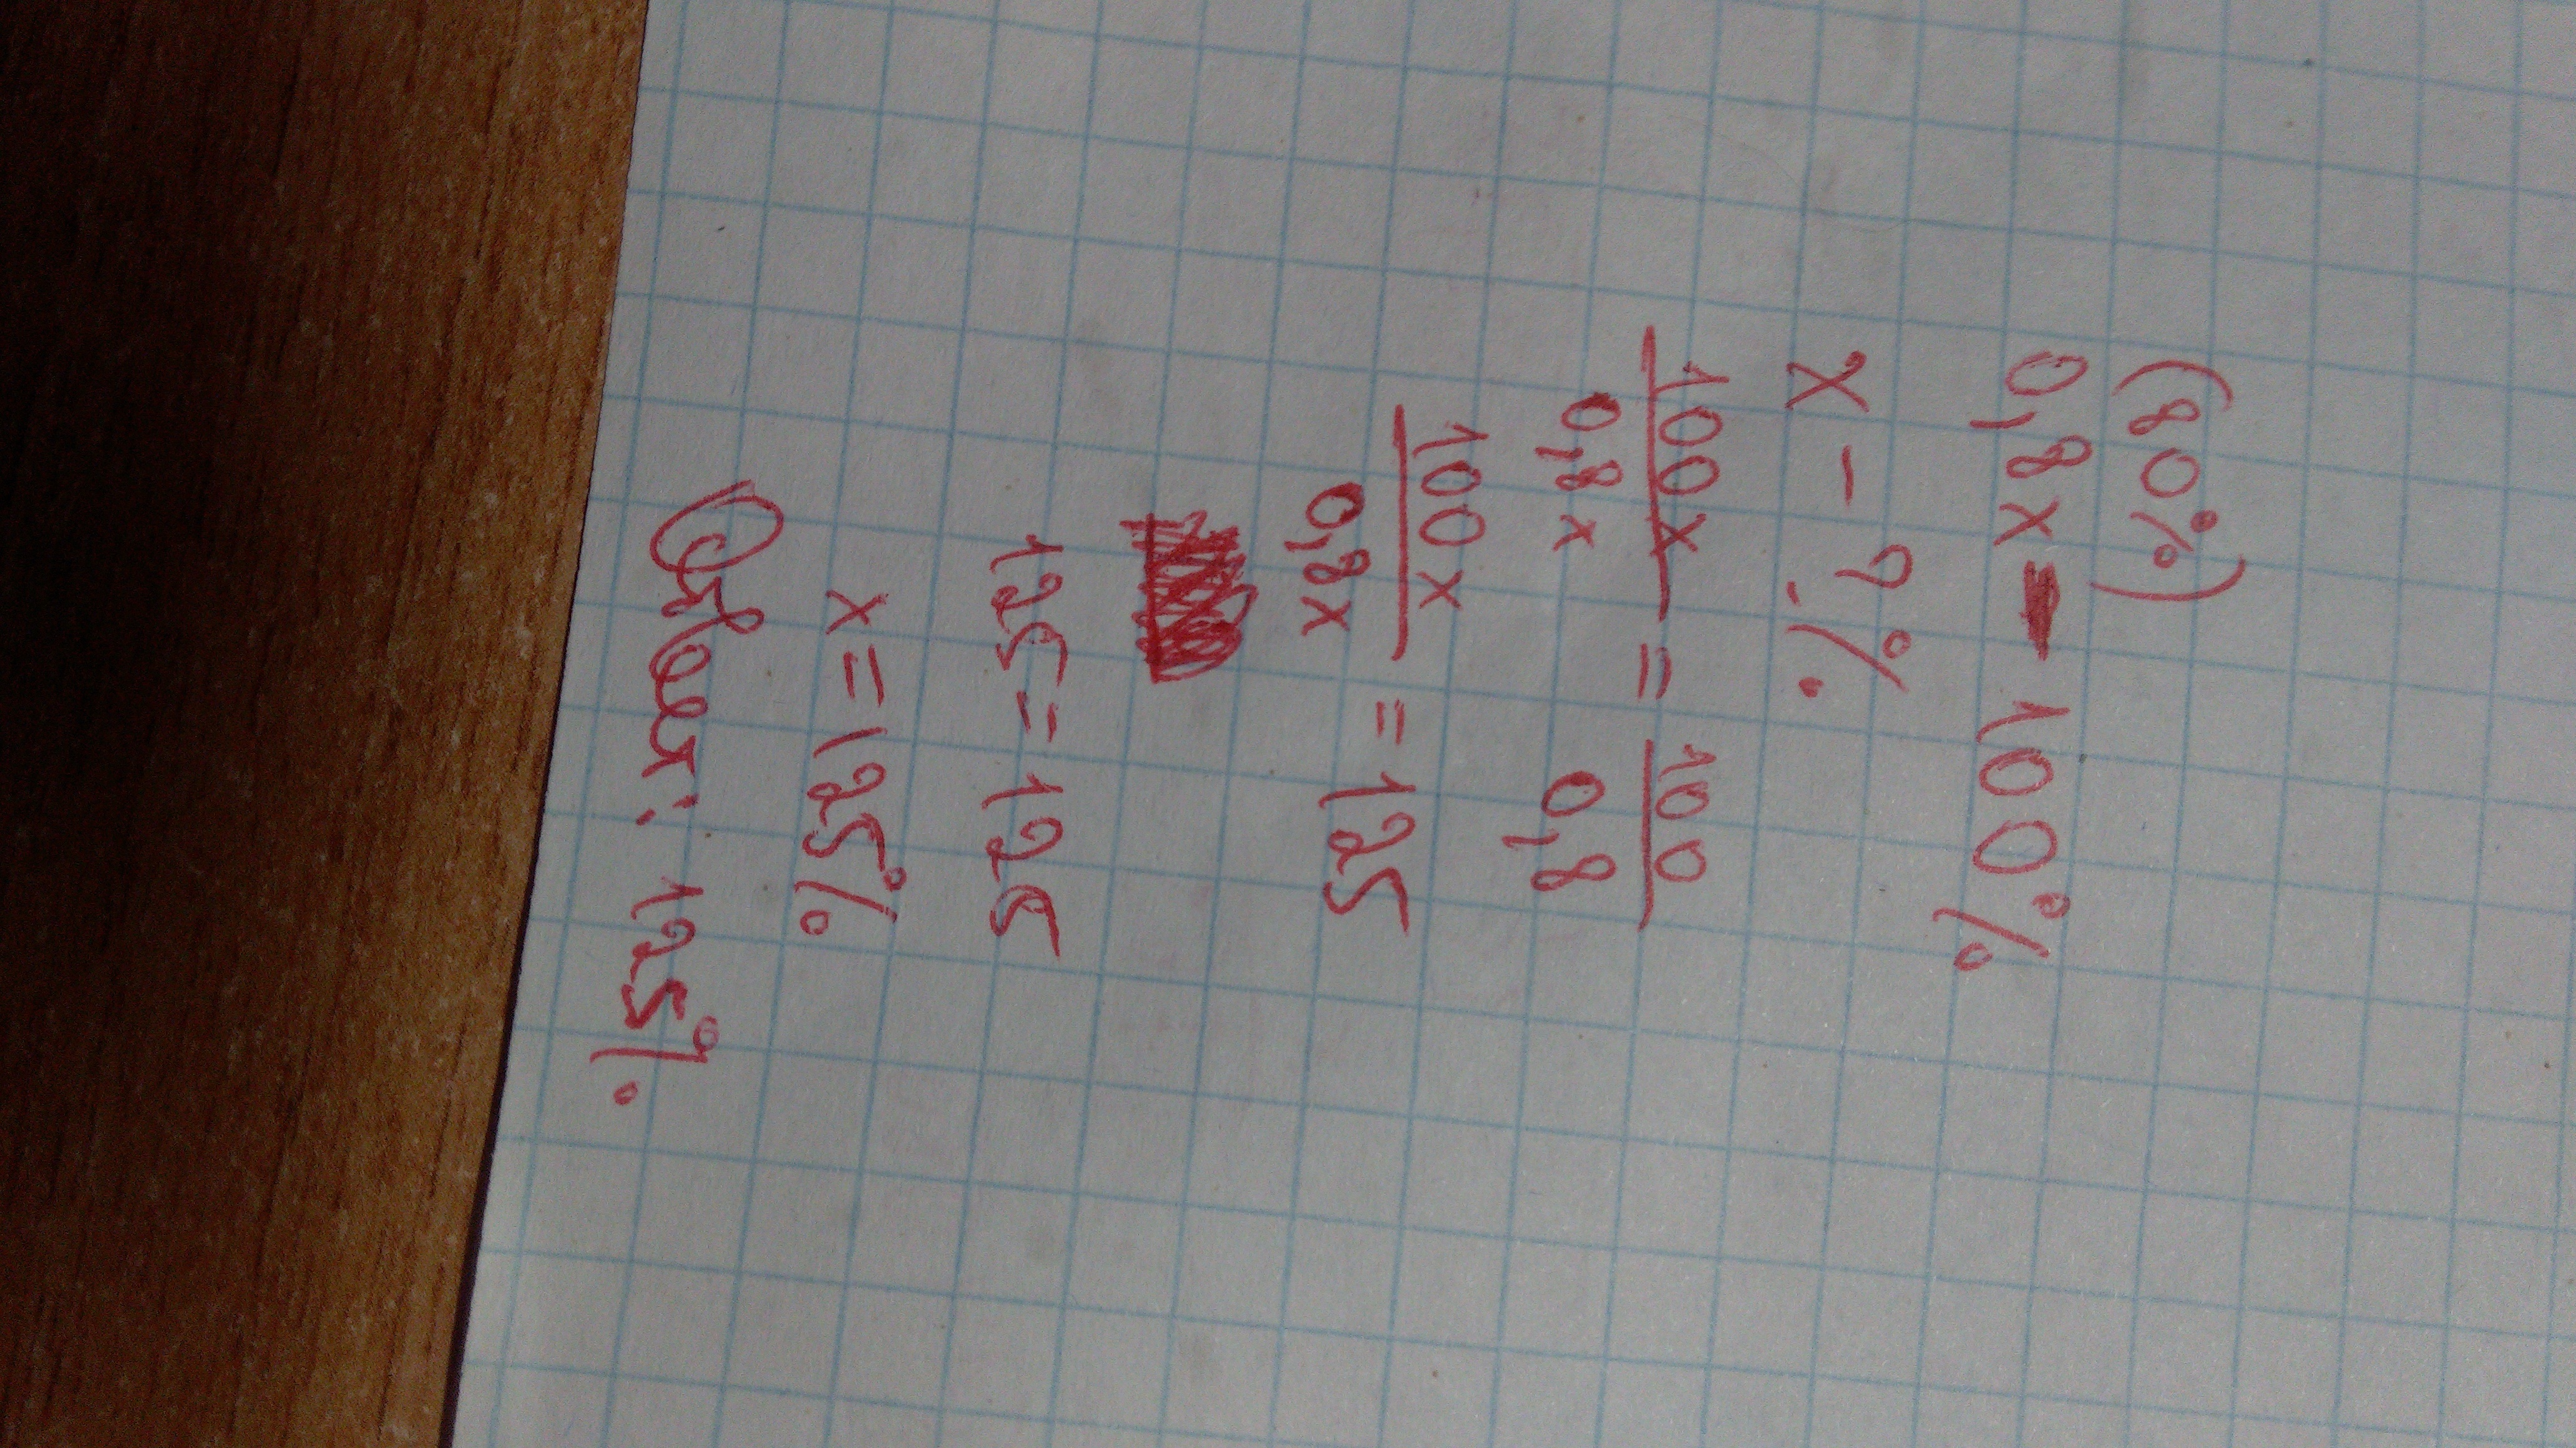 (80%)
0,8x - 100%
x - ?%
100x/0,8x = 100/0,8
100x/0,8x = 125
125 = 125
x = 125%
Ответ: 125%